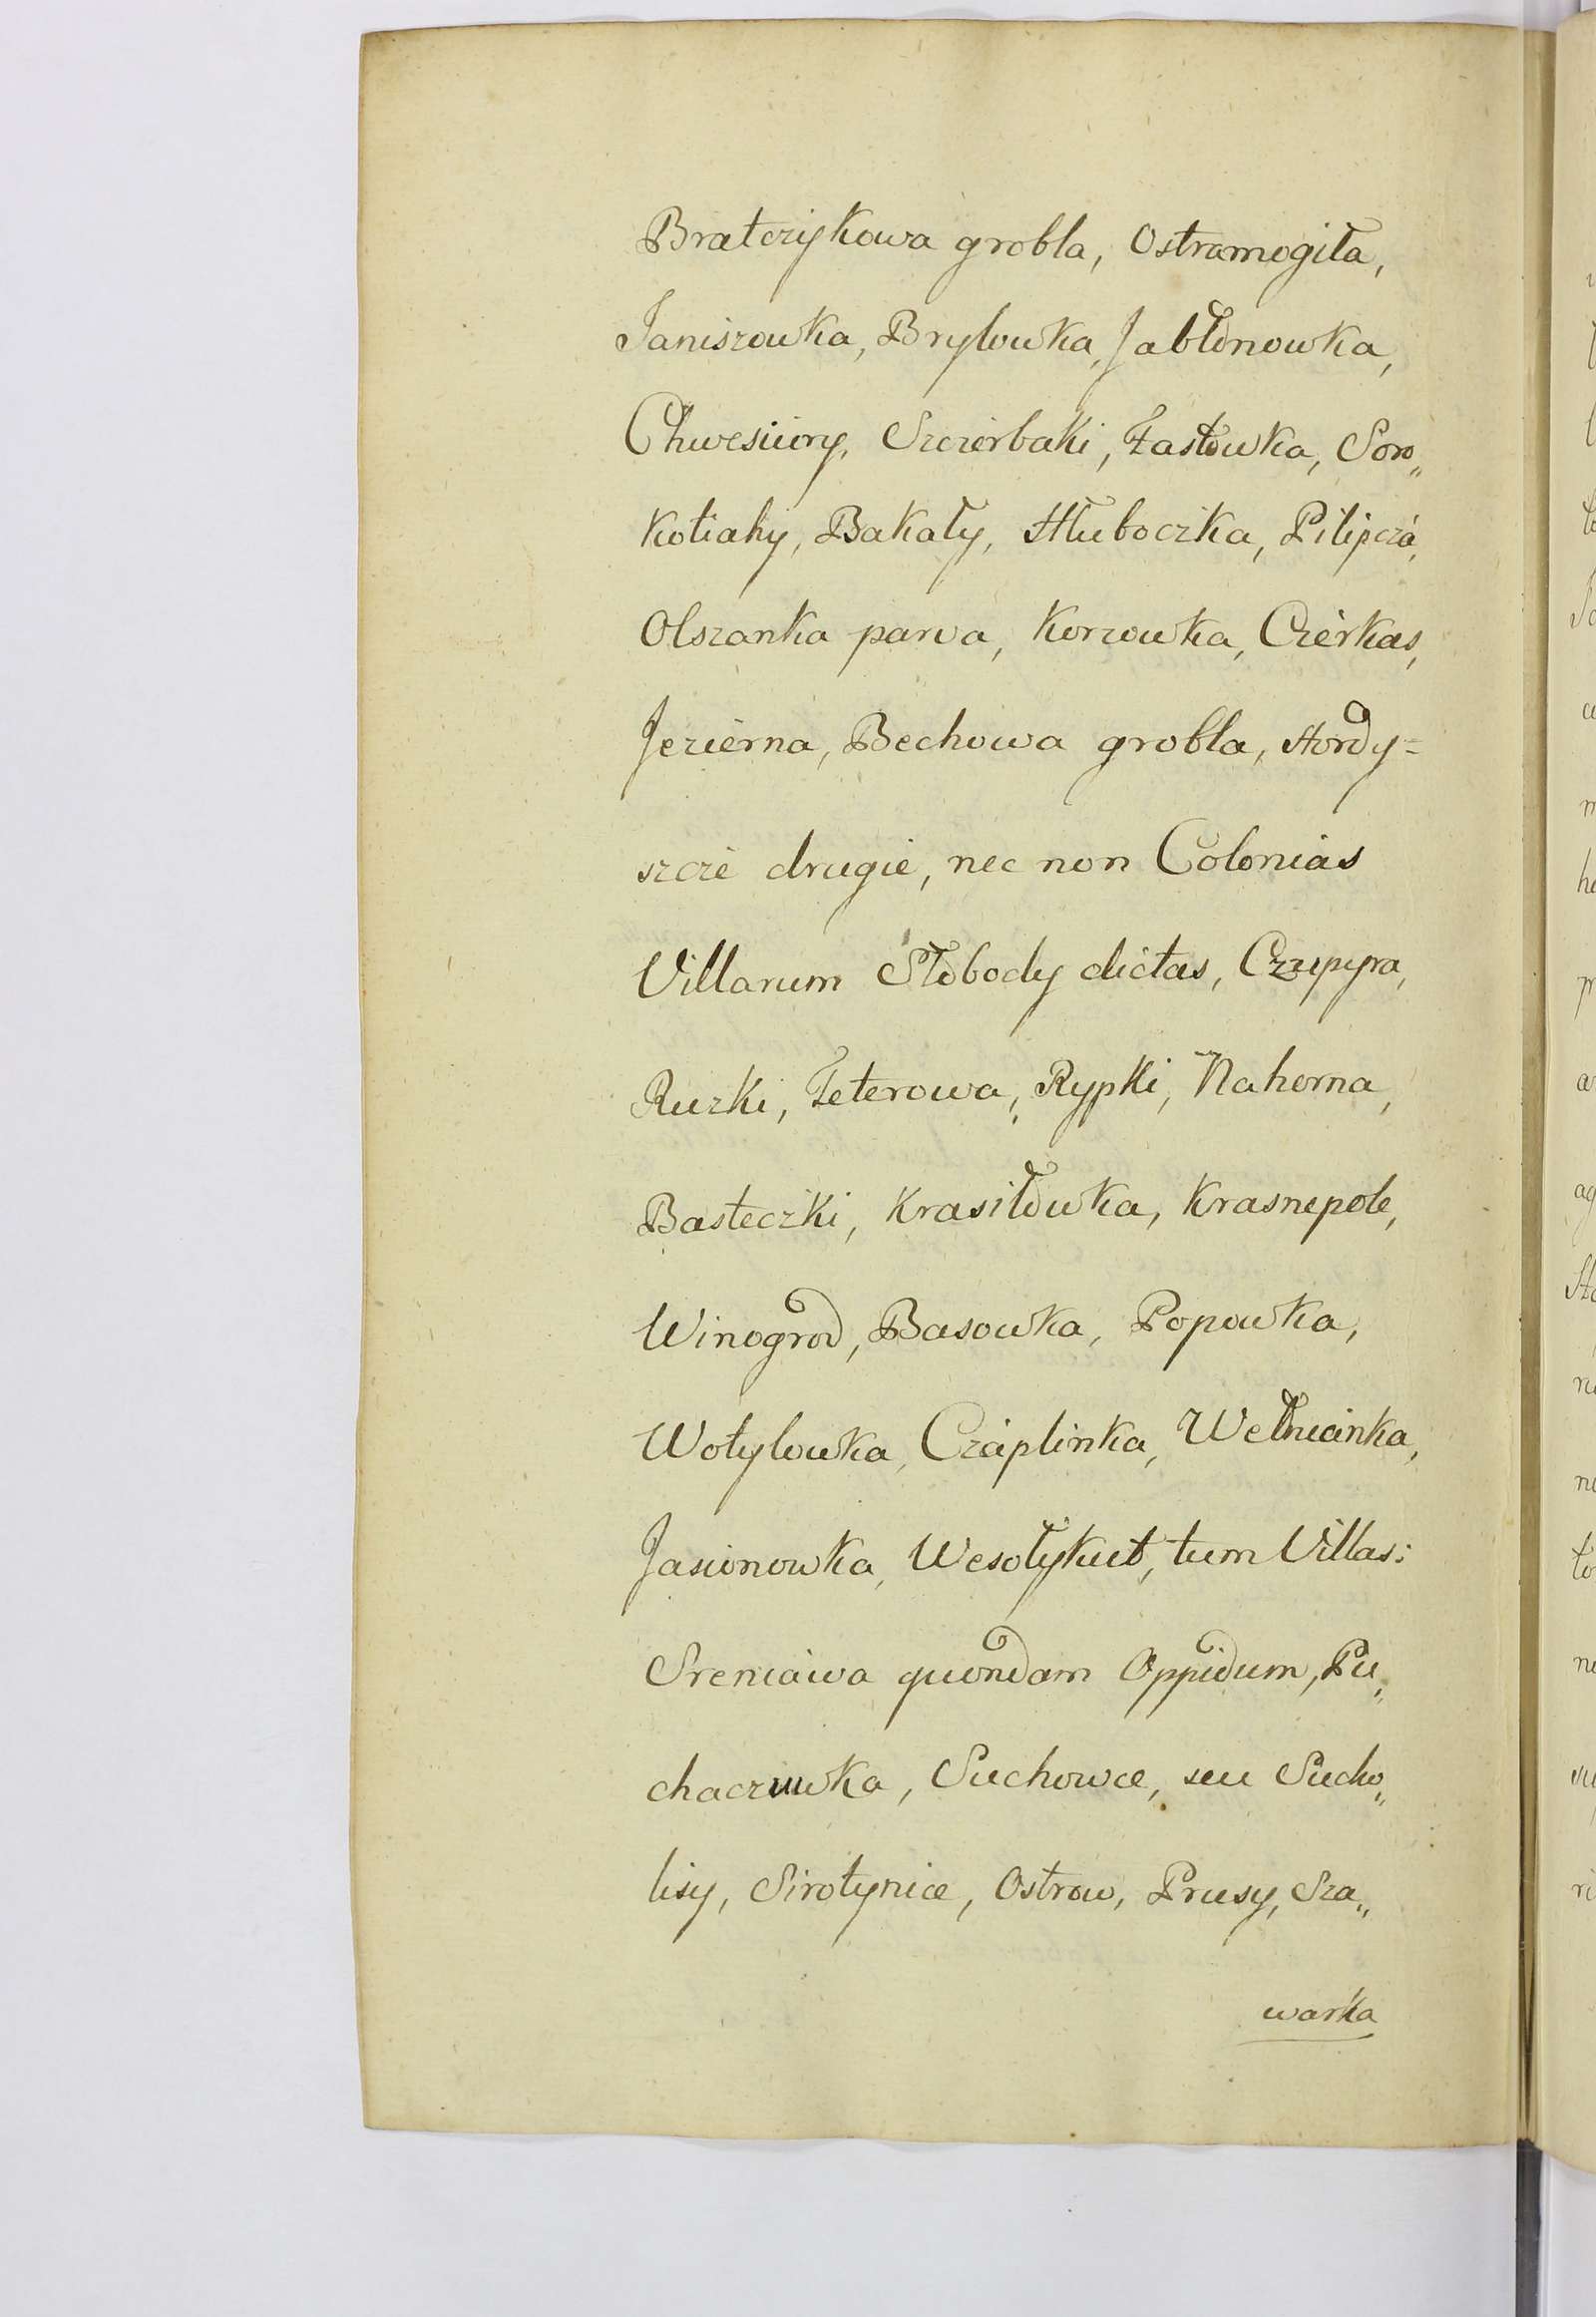 Bratczykowa grobla, Ostramogiła,
Janiszowka, Brylowka, Jabłonowka,
Chwesiury, Szczerbaki, Łasłowka, Soro„
kotiahy, Bakały, Hłuboczka, Pilipcza,
Olszanka parva, Korzowka, Czerkas,
Jezierna, Bechowa grobla, Hordy=
szcze drugie, nec non Colonias
Villarum Słobody dictas, Czupyra,
Ruzki, Teterowa, Rypki, Nahorna,
Basteczki, Krasiłowka, Krasnepole,
Winogrod, Basowka, Popowka,
Wotylowka, Czaplinka, Wełnianka,
Jasionowka, Wesołykut, tum Villas:
Sreniawa quondam Oppidum, Pu„
chaczuwka, Suchowce, seu Sucho„
lisy, Sirotynice, Ostrow, Prusy, Sza„
warka